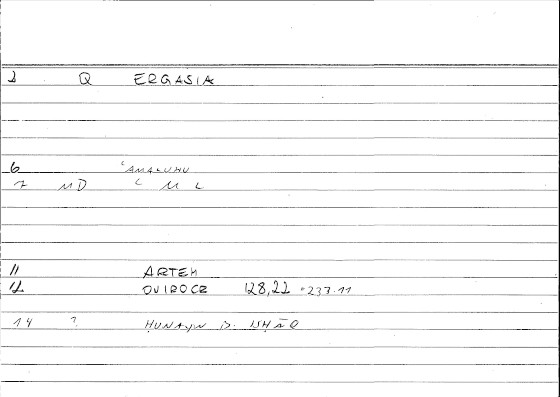 1 Q ERGASIA
6 ʿAMALUHU
7 MD ʿ M L
11 ARTEM
12 OVIROCR 128,22 =237.11
14 ? ḤUNAYN B. ISḤĀQ